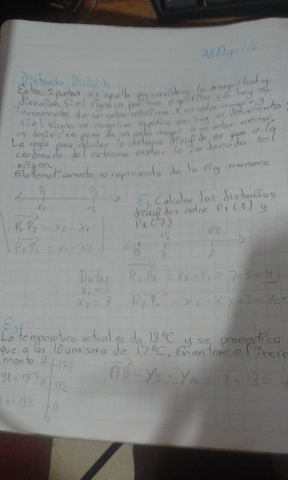 Distancia Dirigida
Entre 2 puntos es aquella que considera la magnitud y
dirección, si el signo es positivo significa que hay un
incremento de un valor menor a un valor mayor y
si el signo es negativo significa que hay un decremento
es decir se pasa de un valor mayor a un valor menor.
La regla para calcular la distancia dirigida es que a la
cordenada del extremo restar la cordenada del
origen.
Matematicamente se representa de la sig manera
P1 P2
x1 x2
P1 P2 = x2 - x1
P2 P1 = x1 - x2
Ej. Calcular las distancias
dirigidas entre P1 (3) y
P2 (7)
P1 P2
0 3 7
Datos
x1 = 3
x2 = 7
P1 P2 = x2 - x1 = 7-3 = 4
P2 P1 = x1 - x2 = 3-7
Ej.
La temperatura actual es de 13°C y se pronostica
que a las 10 am sera de 17°C, Encontrar el incre
mento
17°C
13°C
0
AB = YB - YA = 17 - 13 = 4